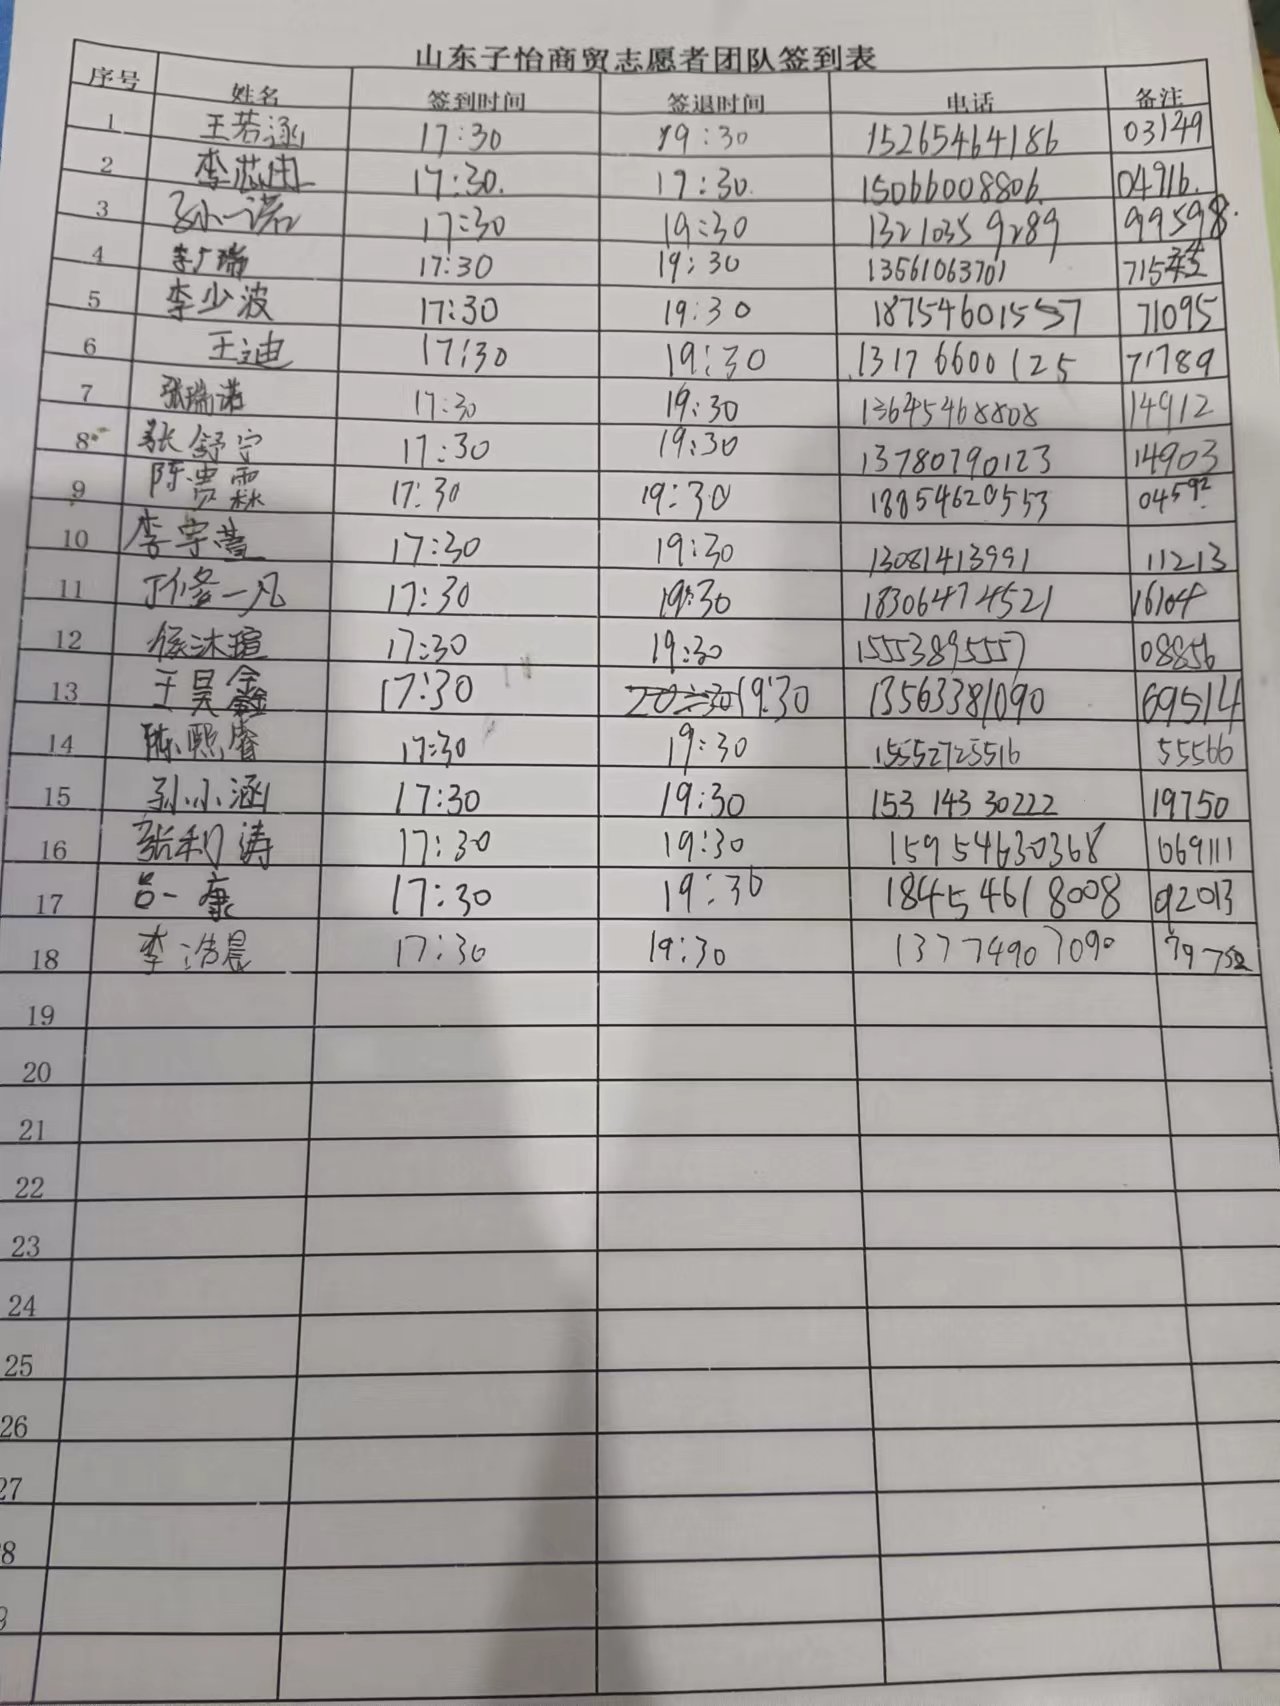 山东子怡商贸志愿者团队签到表
序号 姓名 签到时间 签退时间 电话 备注
1 王若涵 17:30 19:30 15265464186 03149
2 李芯 17:30. 17:30. 15066008806. 04916.
3 孙一诺 17:30 19:30 13210359289 99598.
4 李广瑞 17:30 19:30 13561063701
5 李少波 17:30 19:30 18754601557 71095
6 王迪 17:30 19:30 13176600125 71789
7 张瑞诺 17:30 19:30 13645468808 14912
8 张舒宁 17:30 19:30 13780790123 14903
9 陈贯霖 17:30 19:30 18854620553 04592
10 李宇萱 17:30 19:30 13081413991 11213
11 丁修一凡 17:30 19:30 18306474521 16104
12 侯沐瑄 17:30 19:30 15553895557 08856
13 王昊鑫 17:30 20:30 19:30 13563381090 69514
14 陈熙睿 17:30 19:30 15552725516 55566
15 孙小涵 17:30 19:30 153 143 30222 19750
16 张利涛 17:30 19:30 15954630368 069111
17 吕一康 17:30 19:30 18454618008 92013
18 李浩晨 17:30 19:30 13774907090
19
20
21
22
23
24
25
26
27
8
9